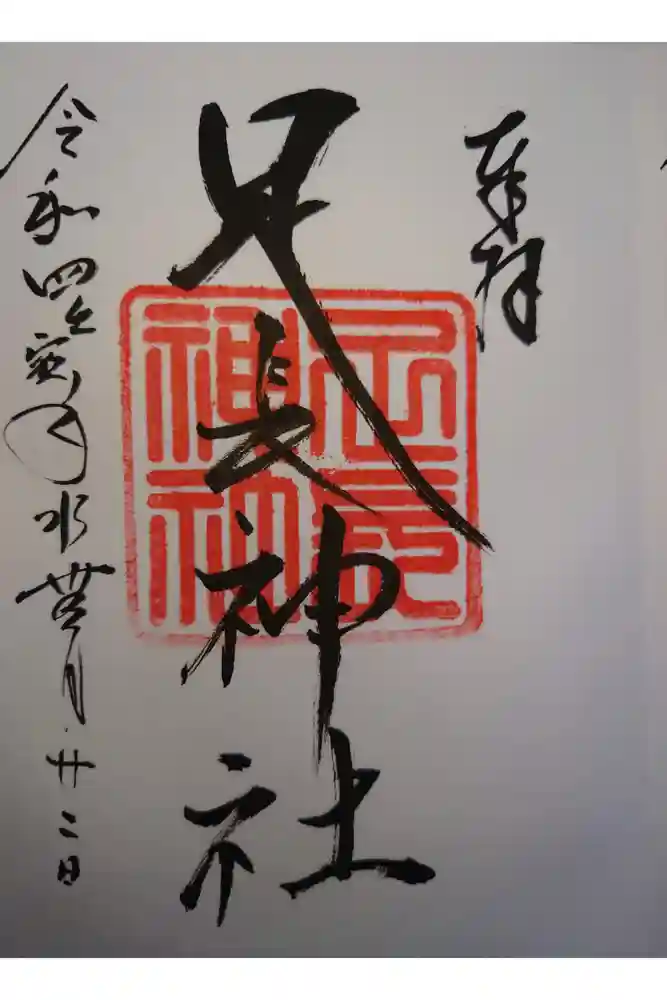 奉拝
足長神社
足長
神社
令和四壬寅年水無月廿二日